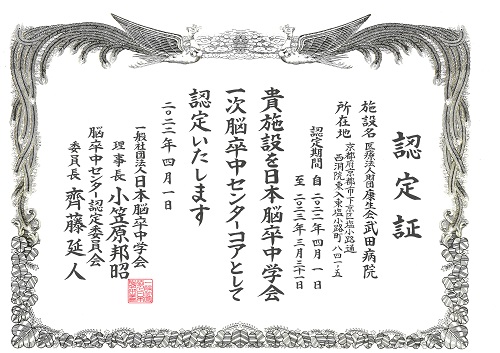 認定証
施設名 医療法人財団康生会 武田病院
所在地 京都府京都市下京区塩小路通
西洞院東入東塩小路町八四一-五
認定期間 自 二〇二二年四月一日
至 二〇二三年三月三十一日
貴施設を日本脳卒中学会
一次脳卒中センターコアとして
認定いたします
二〇二二年四月一日
一般社団法人日本脳卒中学会
理事長 小笠原邦昭
脳卒中センター認定委員会
委員長 齊藤延人